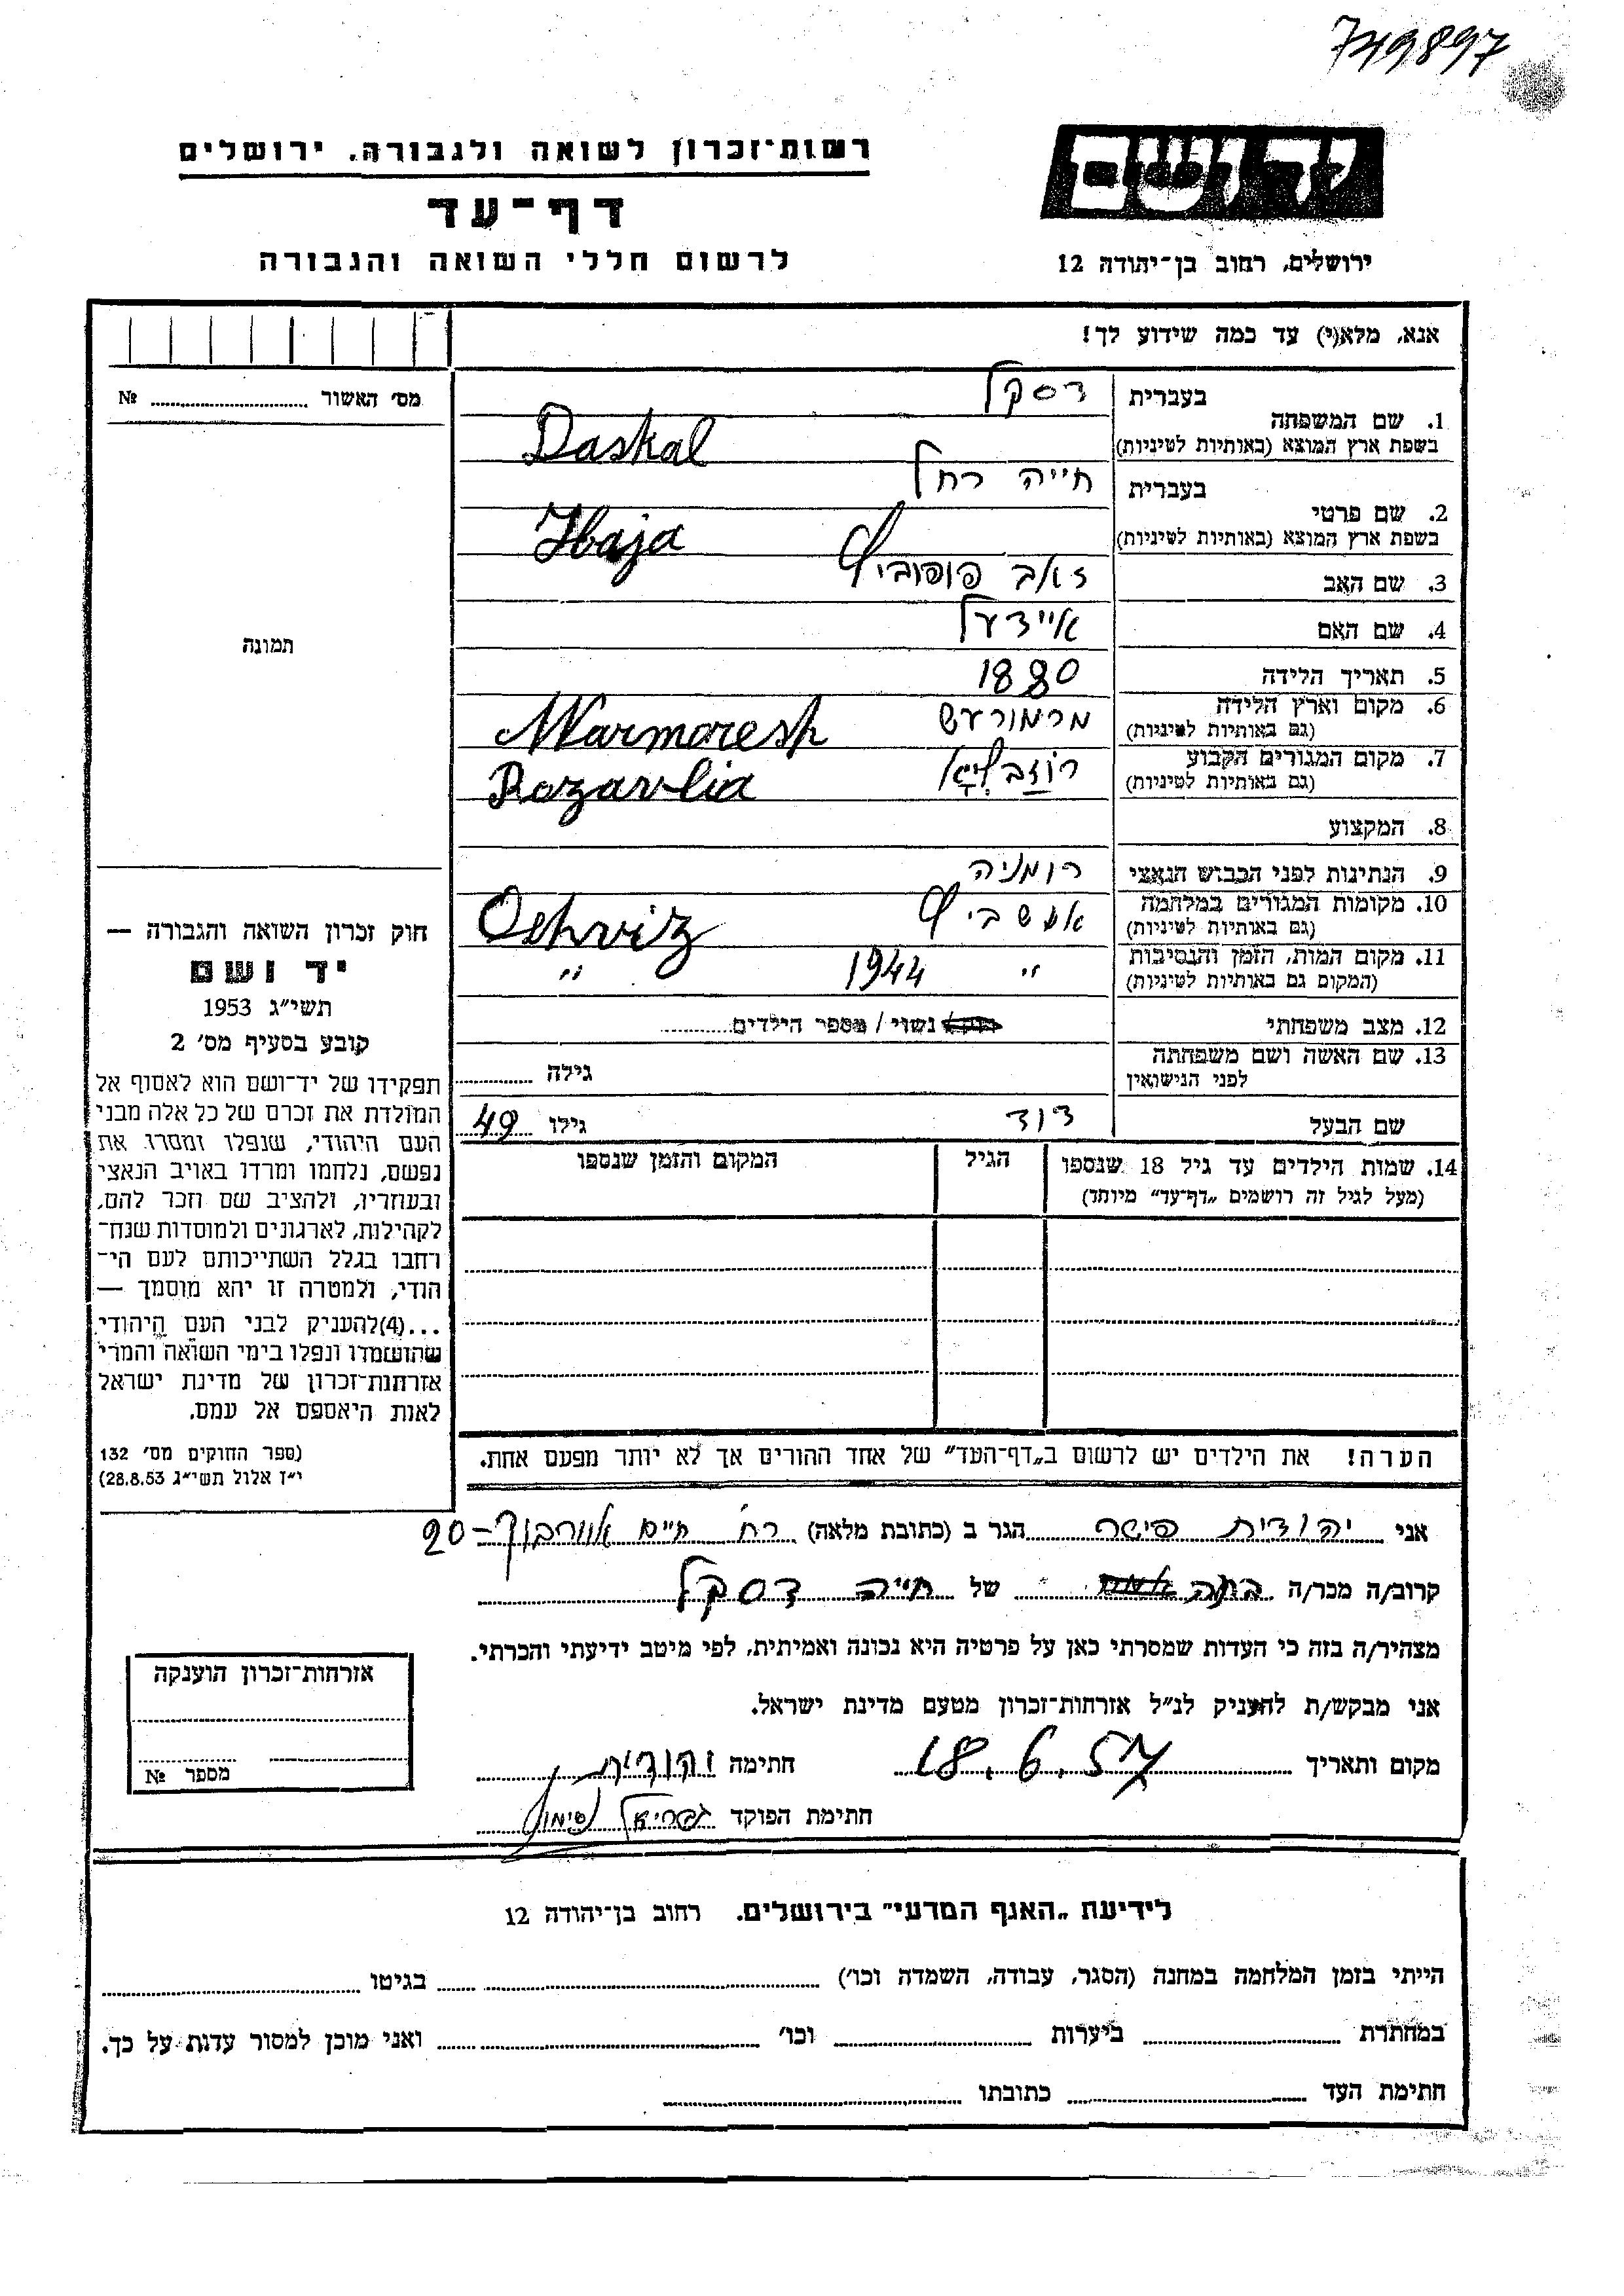 749897
ידושם
ירושלים, רחוב בן־יהודה 12
רשות־זכרון לשואה ולגבורה, ירושלים
דף־עד
לרשום חללי השואה והגבורה
אנא, מלא(י) עד כמה שידוע לך!
מס׳ האשור № 
תמונה
חוק זכרון השואה והגבורה —
יד ושם
תשי״ג 1953
קובע בסעיף מס׳ 2
תפקידו של יד־ושם הוא לאסוף אל
המולדת את זכרם של כל אלה מבני
העם היהודי, שנפלו ומסרו את
נפשם, נלחמו ומרדו באויב הנאצי
ובעוזריו, ולהציב שם וזכר להם,
לקהילות, לארגונים ולמוסדות שנח־
רחבו בגלל השתייכותם לעם הי־
הודי, ולמטרה זו יהא מוסמך —
...(4)להעניק לבני העם היהודי
שהושמדו ונפלו בימי השואה והמרי
אזרחות־זכרון של מדינת ישראל
לאות היאספם אל עמם.
(ספר החוקים מס׳ 132
י״ז אלול תשי״ג 28.8.53)
1. שם המשפחה בעברית דסקל
בשפת ארץ המוצא (באותיות לטיניות) Daskal
2. שם פרטי בעברית חייה רחל
בשפת ארץ המוצא (באותיות לטיניות) Haja
3. שם האב זאב פופוביץ
4. שם האם איידעל
5. תאריך הלידה 1880
6. מקום וארץ הלידה מרמורעש Marmoresh
(גם באותיות לטיניות)
7. מקום המגורים הקבוע רוזבליא Rozavlia
(גם באותיות לטיניות)
8. המקצוע
9. הנתינות לפני הכבוש הנאצי רומניה
10. מקומות המגורים במלחמה אושביץ Oshviz
(גם באותיות לטיניות)
11. מקום המות, הזמן והנסיבות ״ 1944 ״
(המקום גם באותיות לטיניות)
12. מצב משפחתי רווק / נשוי / מספר הילדים
13. שם האשה ושם משפחתה גילה
לפני הנישואין
שם הבעל דוד גילו 49
14. שמות הילדים עד גיל 18 שנספו הגיל המקום והזמן שנספו
(מעל לגיל זה רושמים „דף־עד״ מיוחד)
הערה! את הילדים יש לרשום ב„דף־העד״ של אחד ההורים אך לא יותר מפעם אחת.
אני יהודית פישר הגר ב (כתובת מלאה) רח׳ חיים 20-
קרוב/ה מכר/ה בתה של חייה דסקל
מצהיר/ה בזה כי העדות שמסרתי כאן על פרטיה היא נכונה ואמיתית, לפי מיטב ידיעתי והכרתי.
אני מבקש/ת להעניק לנ״ל אזרחות־זכרון מטעם מדינת ישראל.
מקום ותאריך 18.6.57 חתימה יהודית
חתימת הפוקד גבריאל סימון
אזרחות־זכרון הוענקה
מספר №
לידיעת „האגף המדעי״ בירושלים. רחוב בן־יהודה 12
הייתי בזמן המלחמה במחנה (הסגר, עבודה, השמדה וכו׳) בגיטו
במחתרת ביערות וכו׳ ואני מוכן למסור עדות על כך.
חתימת העד כתובתו